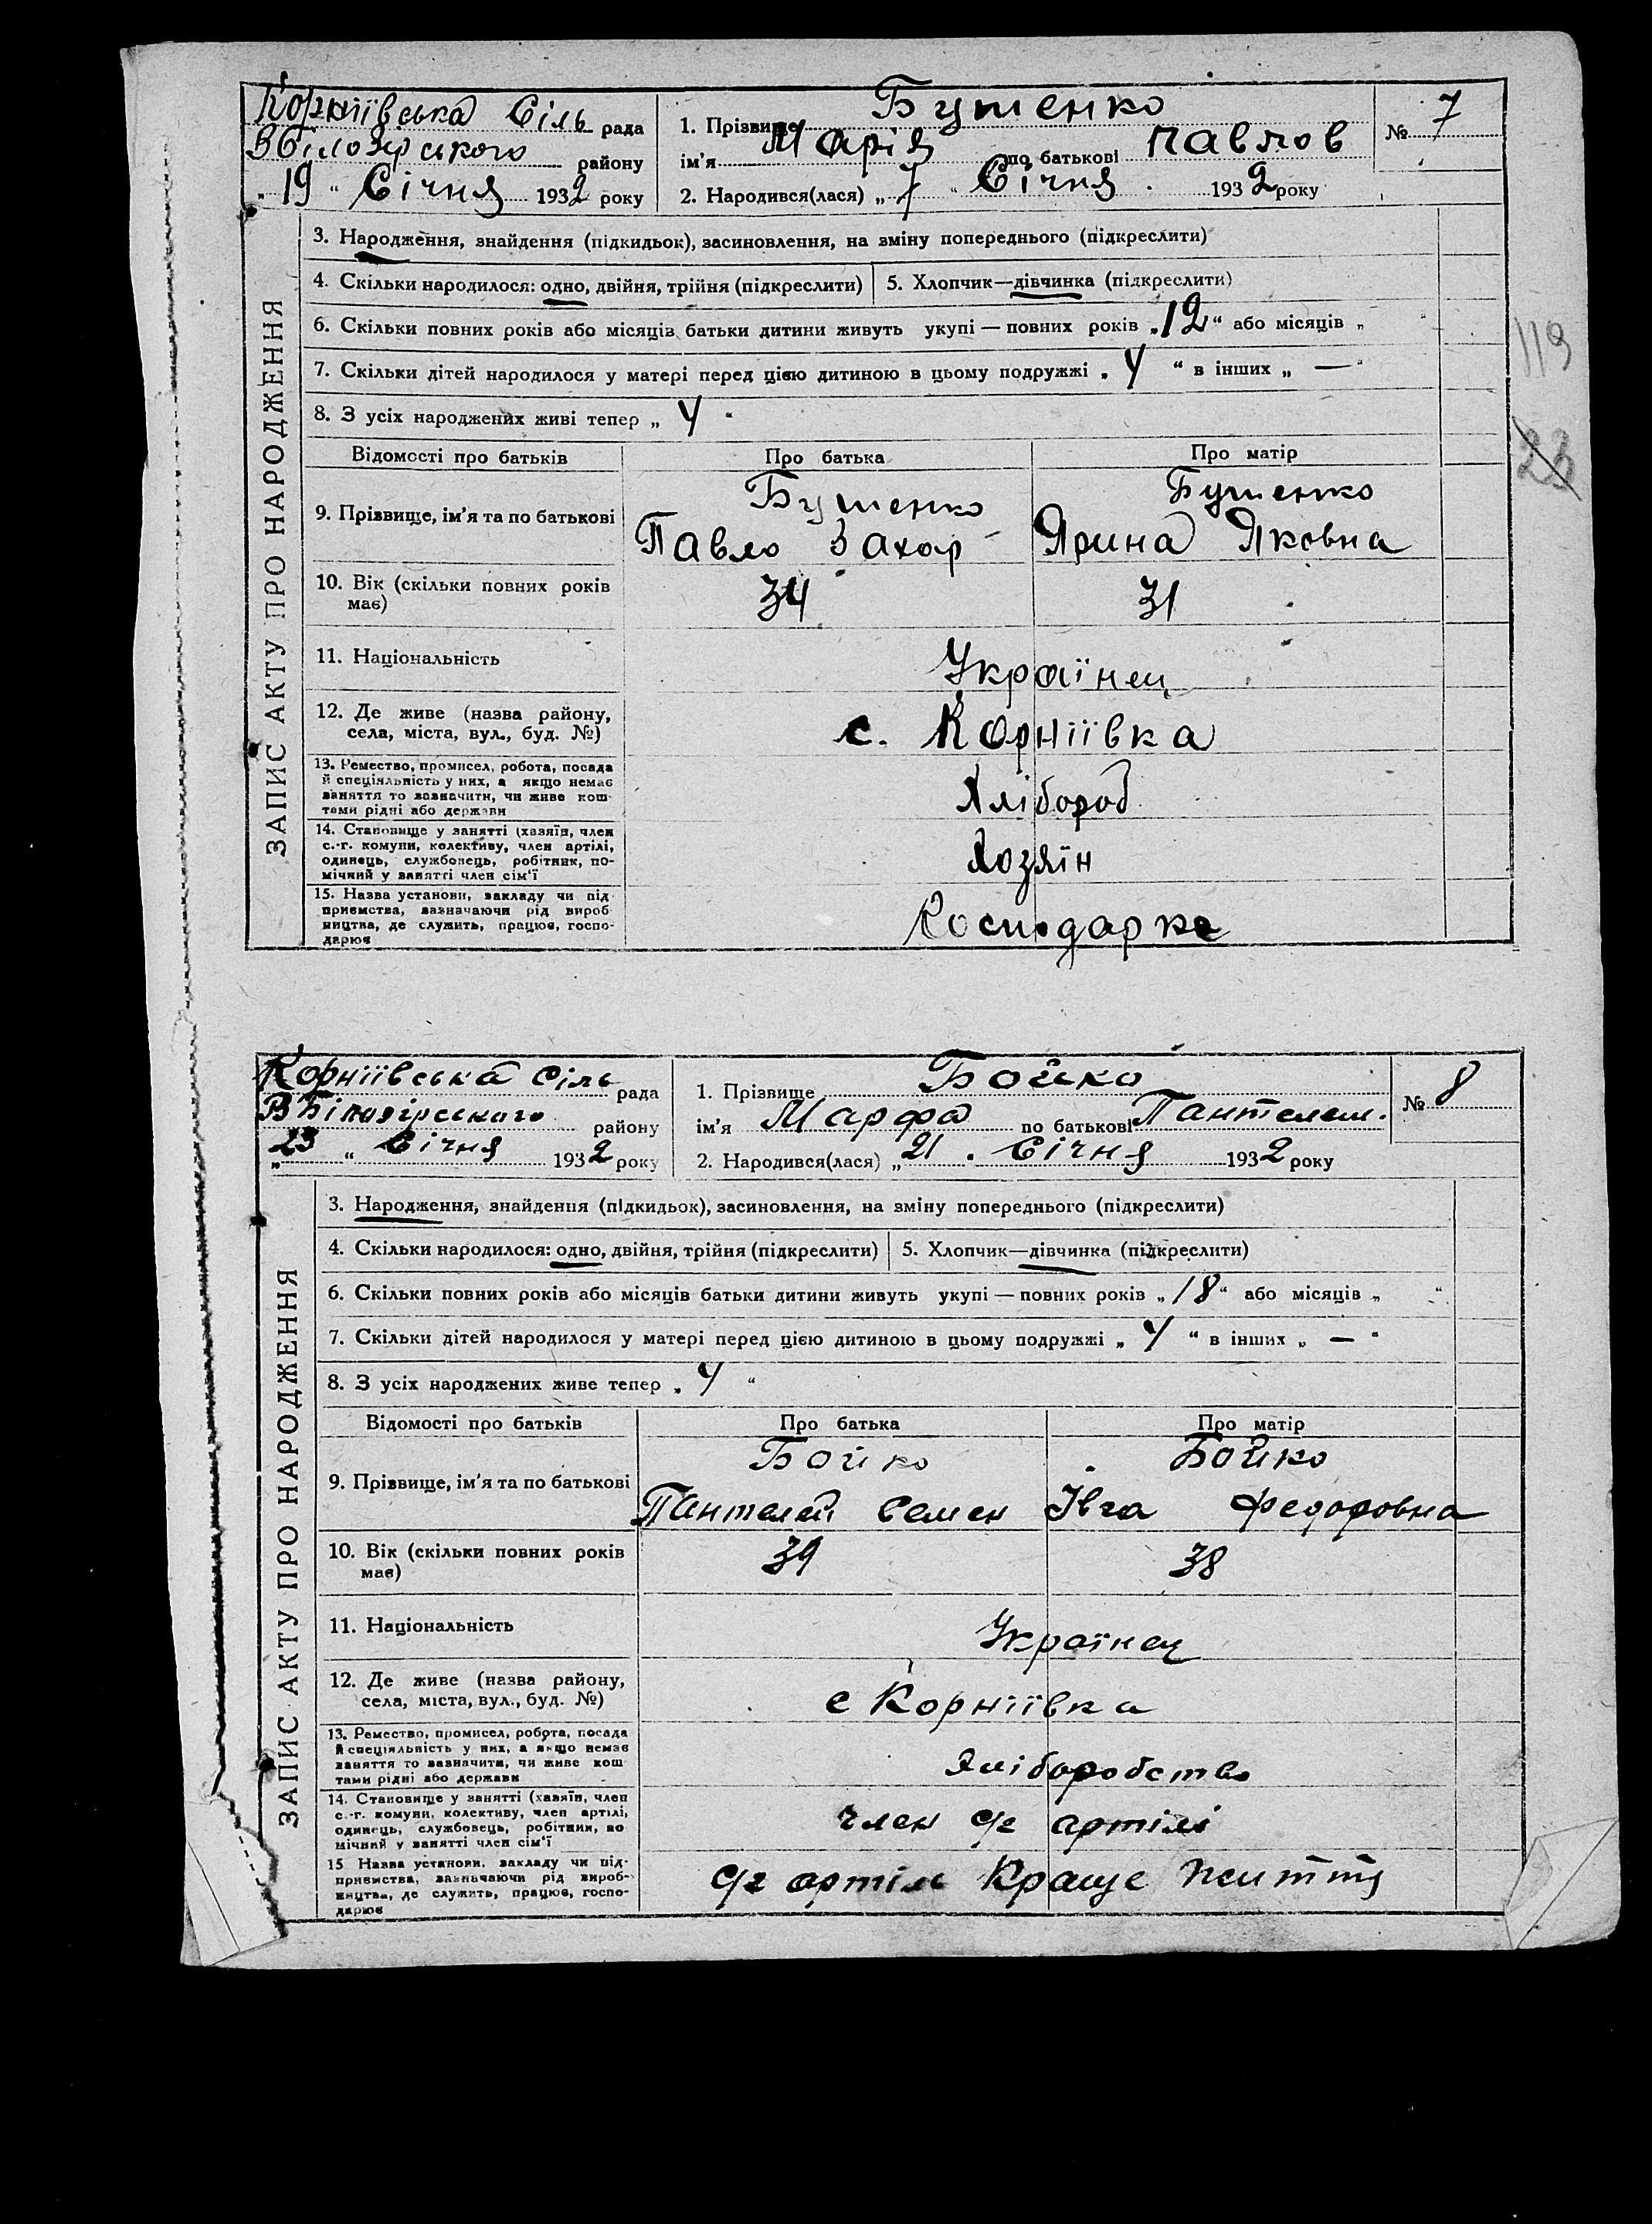 Корніївська Сіль рада
району
„19“ Січня 1932 року
1. Прізвище Бутенко
ім'я Марія по батькові Павлов
2. Народився(лася) „7“ Січня 1932 року
№ 7
ЗАПИС АКТУ ПРО НАРОДЖЕННЯ
3. Народження, знайдення (підкидьок), засиновлення, на зміну попереднього (підкреслити)
4. Скільки народилося: одно, двійня, трійня (підкреслити)
5. Хлопчик—дівчинка (підкреслити)
6. Скільки повних років або місяців батьки дитини живуть укупі — повних років „12“ або місяців „ “
7. Скільки дітей народилося у матері перед цією дитиною в цьому подружжі „4“ в інших „—“
8. З усіх народжених живі тепер „4“
119
23
Відомості про батьків
Про батька
Про матір
9. Прізвище, ім'я та по батькові
Бутенко
Павло Захар
Бутенко
Ярина Яковна
10. Вік (скільки повних років
має)
34
31
11. Національність
Українец
12. Де живе (назва району,
села, міста, вул., буд. №)
с. Корніївка
13. Ремество, промисел, робота, посада
й спеціяльність у них, а якщо немає
заняття то зазначити, чи живе кош-
тами рідні або держави
Хлібороб
14. Становище у занятті (хазяїн, член
с.-г. комуни, колективу, член артілі,
одинець, службовець, робітник, по-
мічний у занятті член сім'ї
Хозяїн
15. Назва установи, закладу чи під-
приємства, зазначаючи рід вироб-
ництва, де служить, працює, госпо-
дарює
Корніївська Сіль рада
району
„23“ Січня 1932 року
1. Прізвище Бойко
ім'я Марфа по батькові Пантелем.
2. Народився(лася) „21. Січня 1932 року
№ 8
ЗАПИС АКТУ ПРО НАРОДЖЕННЯ
3. Народження, знайдення (підкидьок), засиновлення, на зміну попереднього (підкреслити)
4. Скільки народилося: одно, двійня, трійня (підкреслити)
5. Хлопчик—дівчинка (підкреслити)
6. Скільки повних років або місяців батьки дитини живуть укупі — повних років „18“ або місяців „ “
7. Скільки дітей народилося у матері перед цією дитиною в цьому подружжі „4“ в інших „—“
8. З усіх народжених живе тепер „4“
Відомості про батьків
Про батька
Про матір
9. Прізвище, ім'я та по батькові
Бойко
Пантелей Семен
Бойко
Івга Федоровна
10. Вік (скільки повних років
має)
39
38
11. Національність
Українец
12. Де живе (назва району,
села, міста, вул., буд. №)
с Корніївка
13. Ремество, промисел, робота, посада
й спеціяльність у них, а якщо немає
заняття то зазначити, чи живе кош-
тами рідні або держави
Хліборобство
14. Становище у занятті (хазяїн, член
с.-г. комуни, колективу, член артілі,
одинець, службовець, робітник, по-
мічний у занятті член сім'ї
член с/г артілі
15 Назва установи, закладу чи під-
приємства, зазначаючи рід вироб-
ництва, де служить, працює, госпо-
дарює
с/г артіль Краще життя